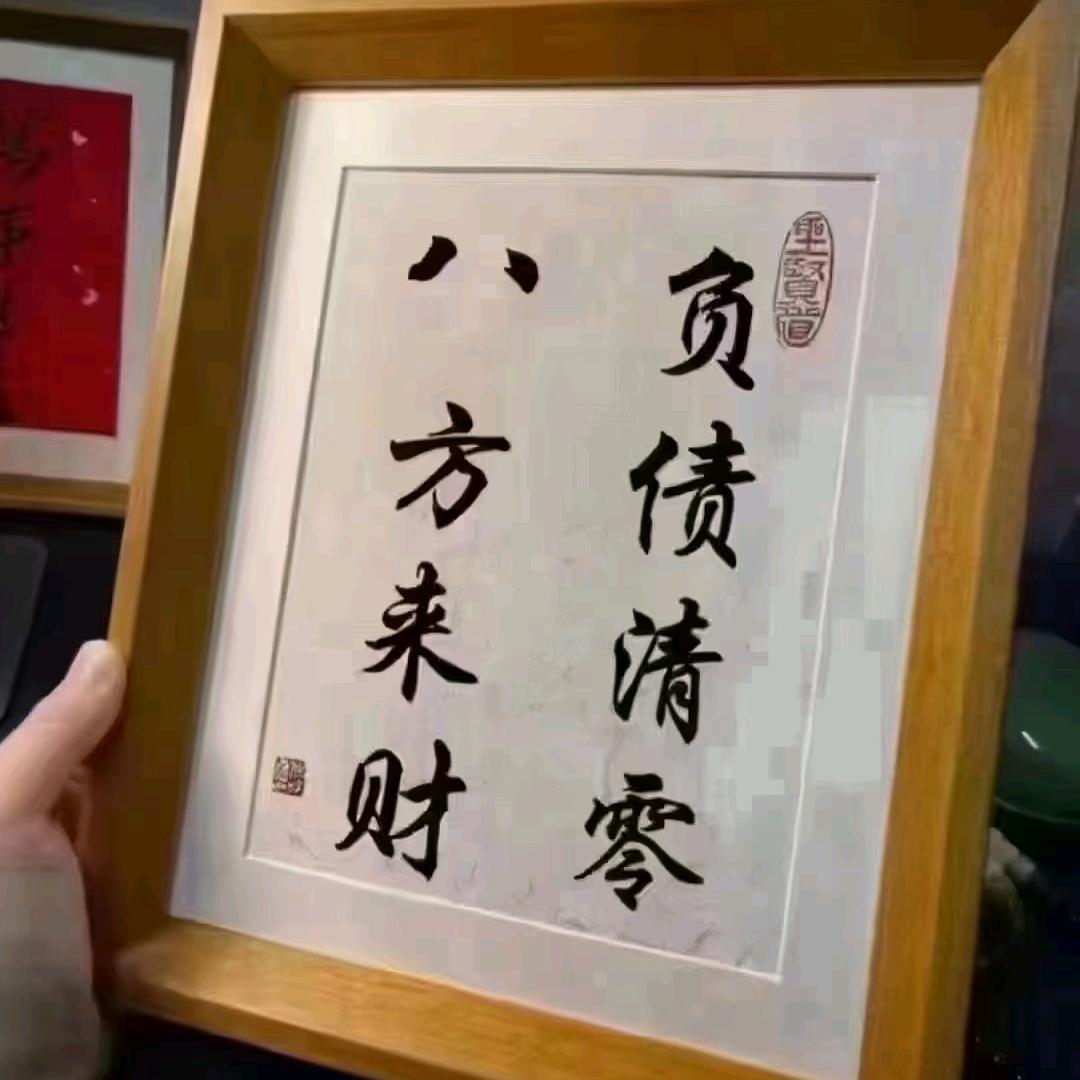 负债清零
八方来财